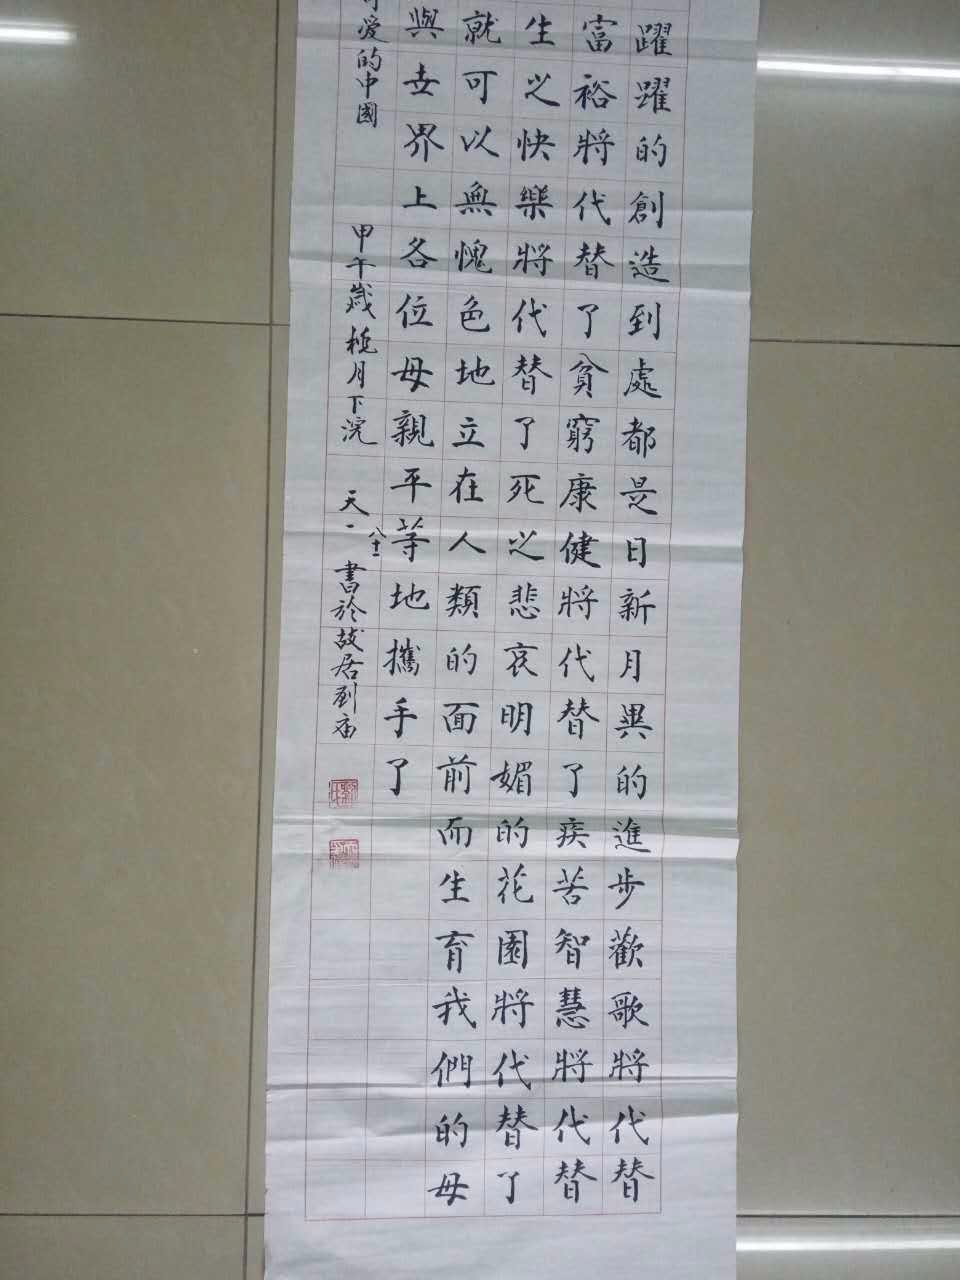 躍躍的創造到處都是日新月異的進步歡歌將代替
富裕將代替了貧窮康健將代替了疾苦智慧將代替
生之快樂將代替了死之悲哀明媚的花園將代替了
就可以無愧色地立在人類的面前而生育我們的母
與世界上各位母親平等地攜手了
可愛的中國
甲午歲桃月下浣
天一
八十二
書於故居劉庙